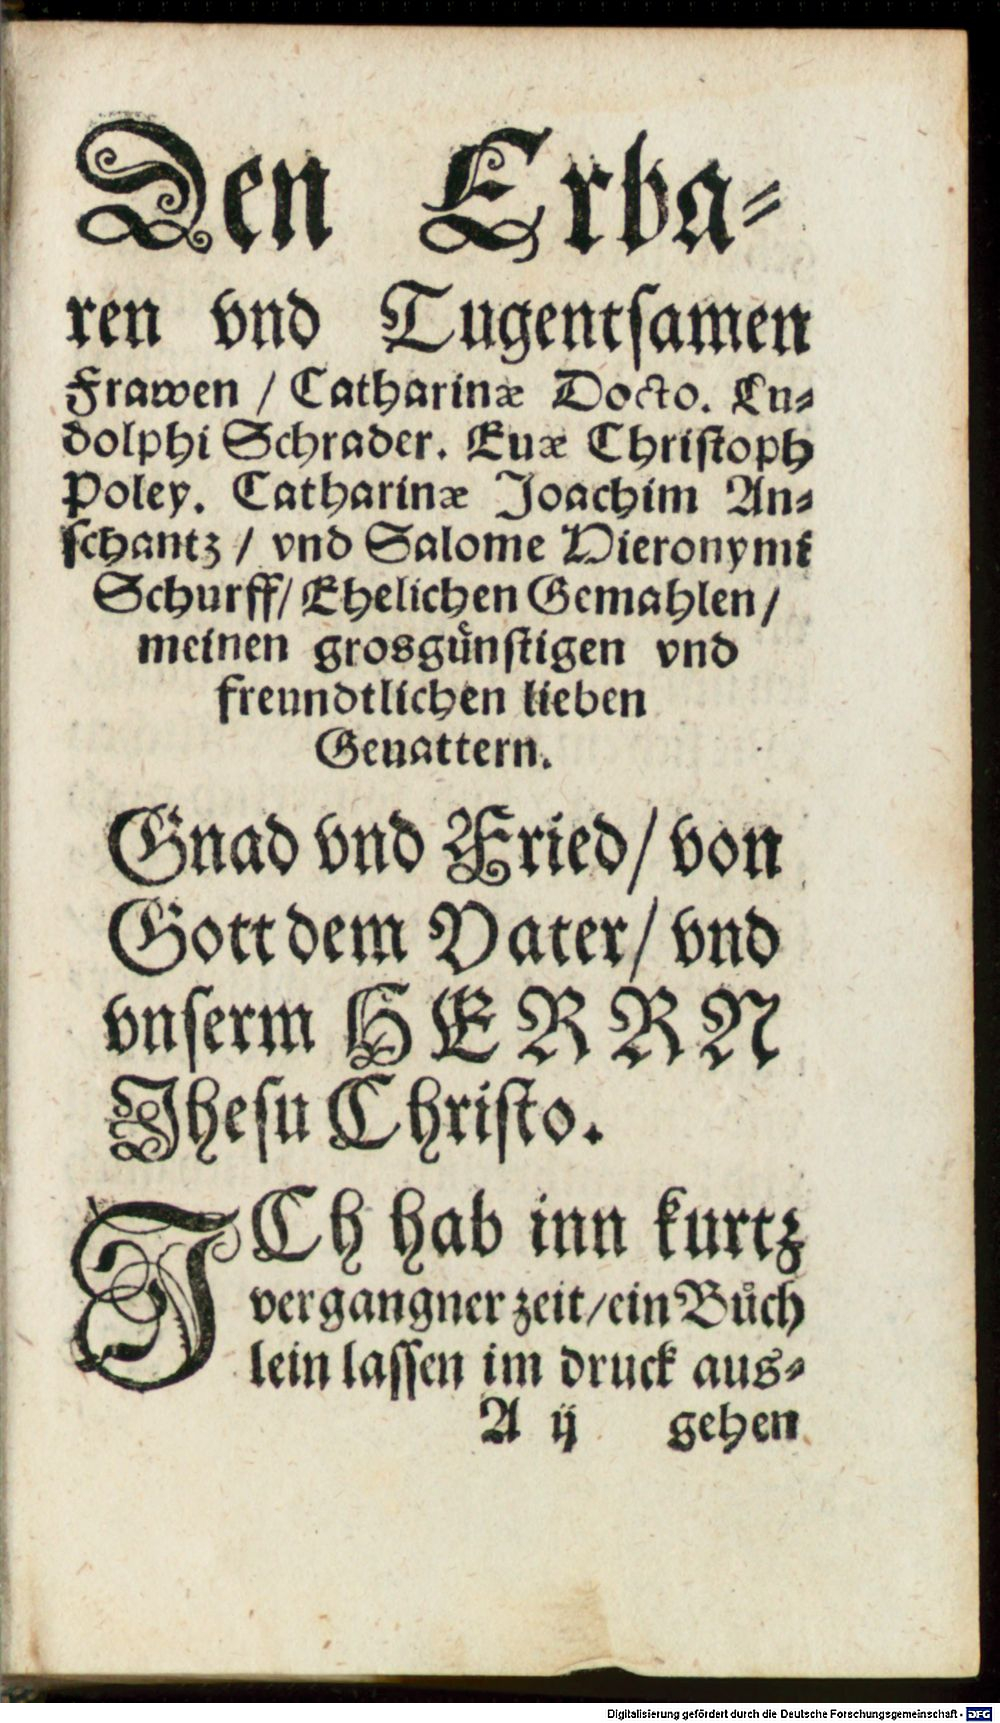 Den Erba-
ren vnd Tugentsamen
Frawen / Catharinæ Docto. Lu-
dolphi Schrader. Euæ Christoph
Poley. Catharinæ Joachim An-
schantz / vnd Salome Hieronymi
Schurff / Ehelichen Gemahlen /
meinen grosgünstigen vnd
freundtlichen lieben
Geuattern.
Gnad vnd Fried / von
Gott dem Vater / vnd
vnserm HERRN
Jhesu Christo.
ICh hab inn kurtz
vergangner zeit / ein Büch
lein lassen im druck aus-
A ij gehen
Digitalisierung gefördert durch die Deutsche Forschungsgemeinschaft - DFG